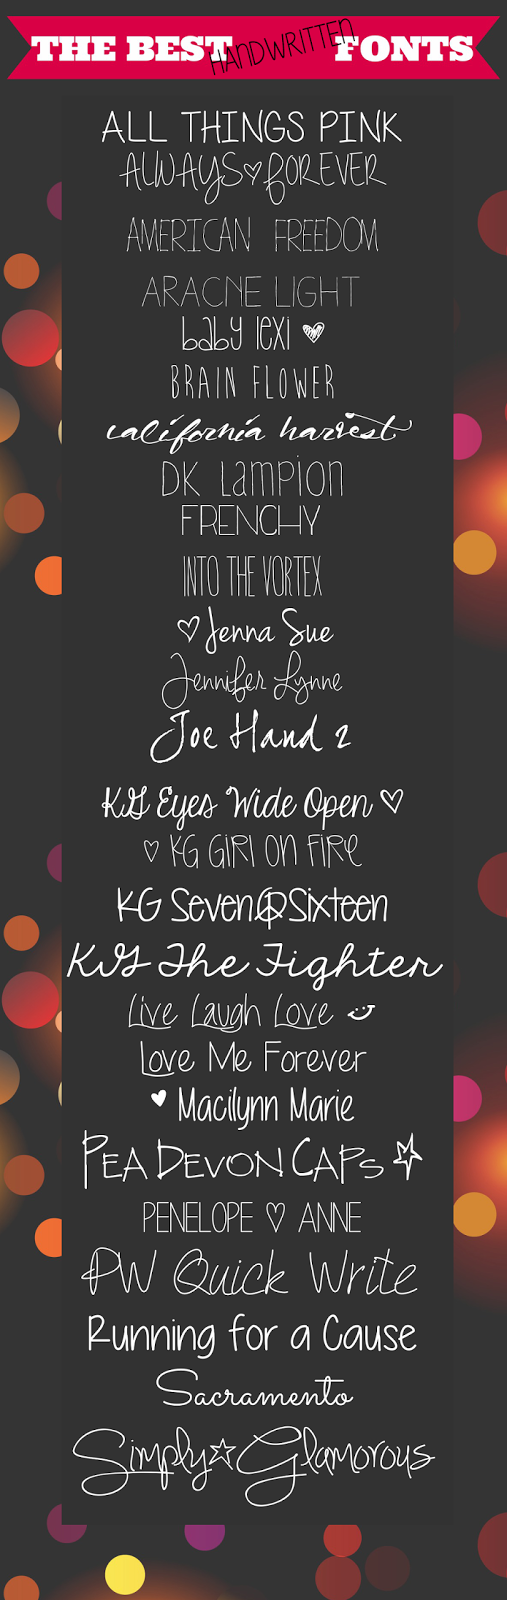 THE BEST HANDWRITTEN FONTS
ALL THINGS PINK
ALWAYS♡FOREVER
AMERICAN FREEDOM
ARACNE LIGHT
baby lexi ♥
BRAIN FLOWER
california harvest
DK Lampion
FRENCHY
INTO THE VORTEX
♡Jenna Sue
Jennifer Lynne
Joe Hand 2
KG Eyes Wide Open ♡
♡ KG GIRl On FIRe
KG Seven@Sixteen
KG The Fighter
Live Laugh Love
Love Me Forever
♥ Macilynn Marie
PEA DEVON CAPS ☆
PENELOPE ♡ ANNE
PW Quick Write
Running for a Cause
Sacramento
Simply☆Glamorous